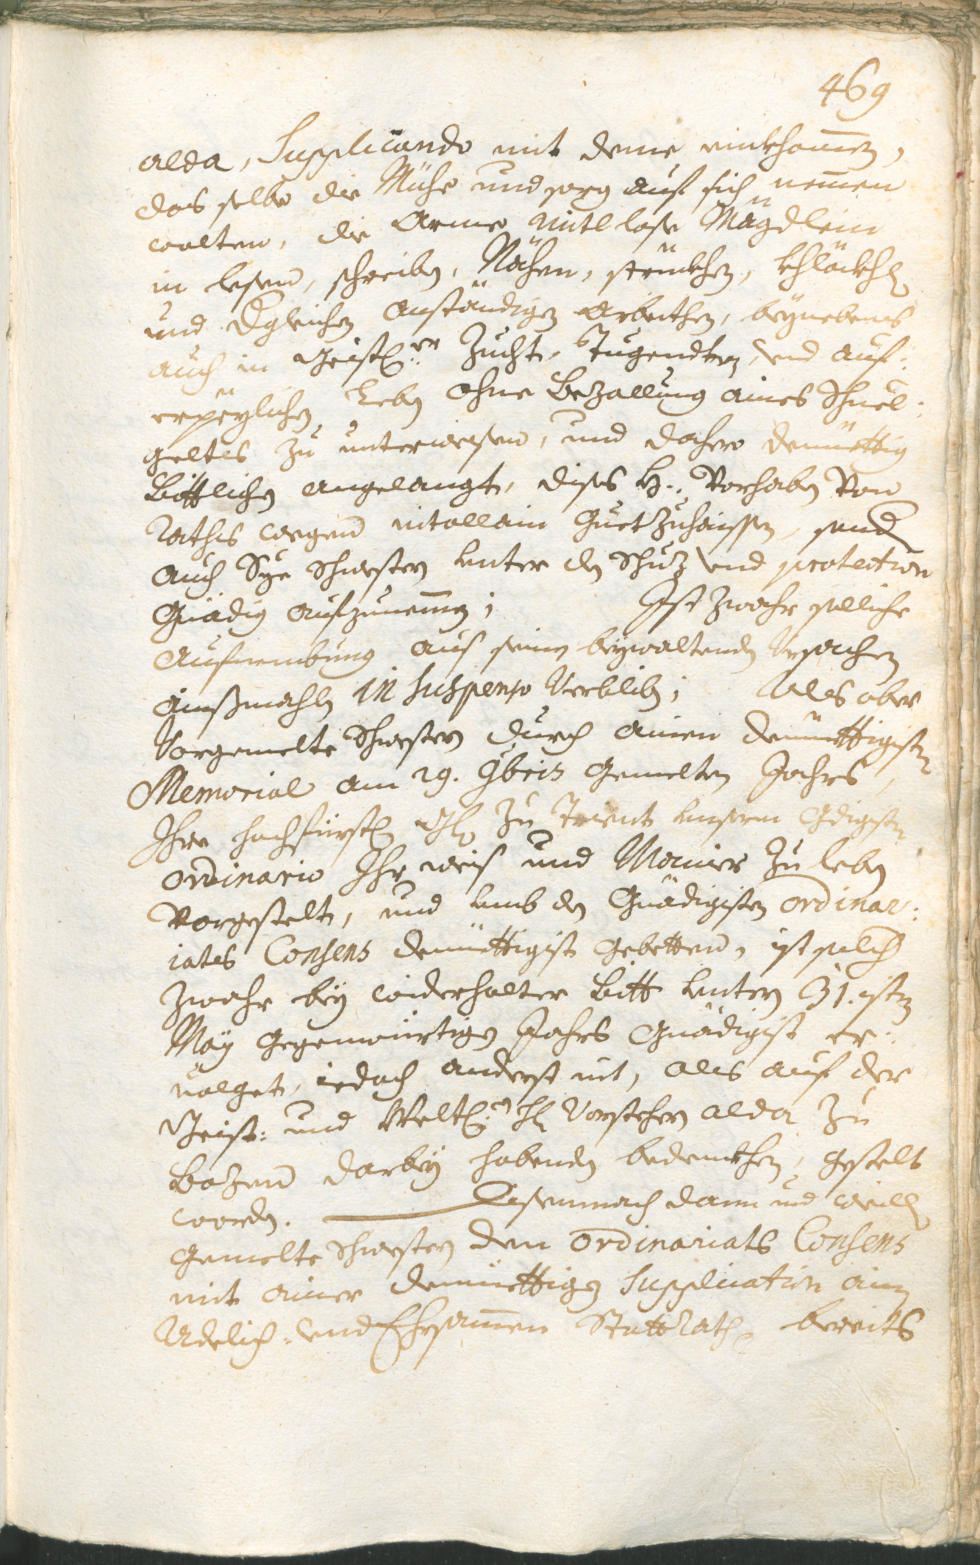 469
alda, Supplicando mit deme einkhomen,
das selbe die Mühe und sorg auf sich nemen
wolten, die Arme mitlose Mägdlein
in lesen, schreiben, Nähen, strickhen, khlöckhlen
und dgleichen anständigen Arbeithen, beynebens
auch in Geistl:er Zucht, Tugendten, und auf:
erpeylichen Leben ohne Bezallung aines Schuel:
geltes zu unterweisen, und dahero demüettig
bittlichen angelangt, dises H: Vorhaben Von
Rathts wegen nit allain Guet zuhaissen, sond
auch Sye Schwestern unter den Schuz und protection
Gnädig aufzunemen; Ist zwahr solliche
Aufnembung aus seinen beywaltenden Ursachen
ainsmahls in suspenso Verbliben; Als aber
Vorgemelte Schwestern durch ainen demüettigisten
Memorial am 29. 9bris gemelten Jahrs,
Ihro hochfürstl: zu Trient unserm Gdigisten
ordinario Ihr weis und Manier zu leben
Vorgestelt, und umb den Gnädigisten ordinar:
iats Consens demüettigist gebetten, ist solch
zwahr bey widerholter Bitt untern 31.isten
May gegenwürtigen Jahrs Gnädigist er:
volget, iedoch anderst nit, als auf der
Geist: und Welt: H Vorsteher alda zu
Bozen darbey habenden bedenkhen, gestelt
worden. Disemnach dann und weillen
gemelte Schwestern den ordinariats Consens
mit ainer demüettigen Supplication ainem
Adelich: und Ehrsamen StattRath bereits